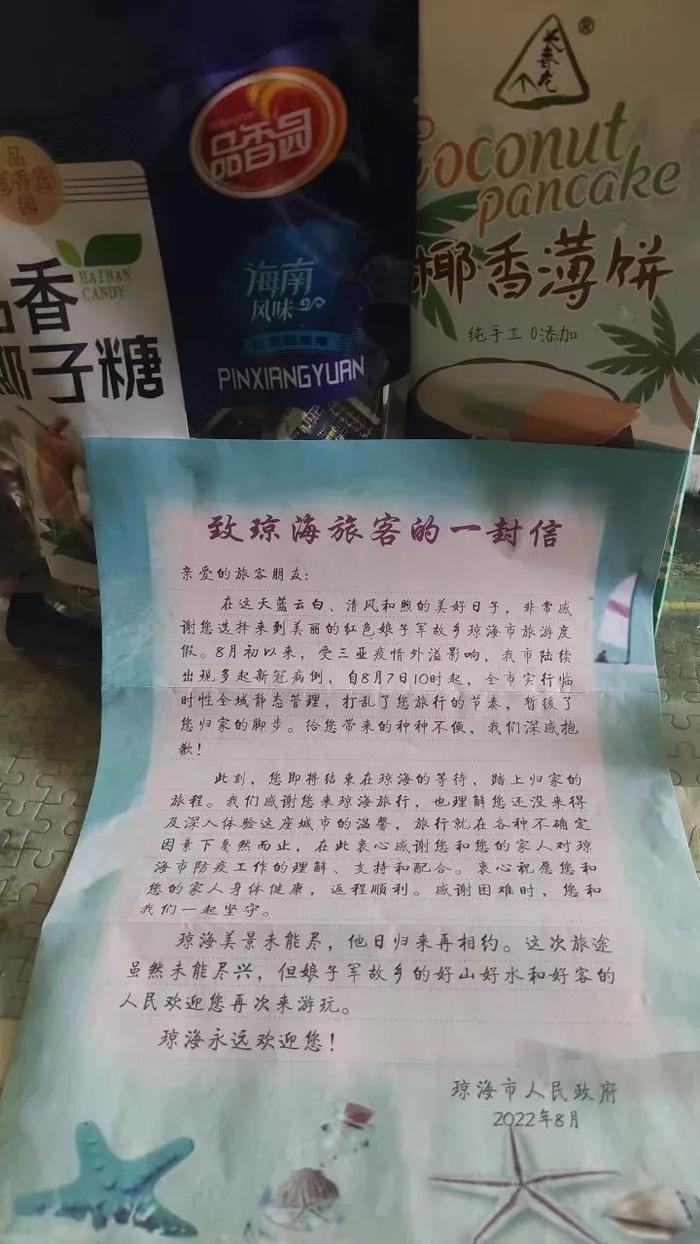 品香园
HAINAN
CANDY
品香
椰子糖
品香园
海南
风味
PINXIANGYUAN
长寿龙
®
Coconut
pancake
椰香薄饼
纯手工 0添加
致琼海旅客的一封信
亲爱的旅客朋友：
在这天蓝云白、清风和煦的美好日子，非常感
谢您选择来到美丽的红色娘子军故乡琼海市旅游度
假。8月初以来，受三亚疫情外溢影响，我市陆续
出现多起新冠病例，自8月7日10时起，全市实行临
时性全域静态管理，打乱了您旅行的节奏，暂缓了
您归家的脚步。给您带来的种种不便，我们深感抱
歉！
此刻，您即将结束在琼海的等待，踏上归家的
旅程。我们感谢您来琼海旅行，也理解您还没来得
及深入体验这座城市的温馨，旅行就在各种不确定
因素下戛然而止，在此衷心感谢您和您的家人对琼
海市防疫工作的理解、支持和配合。衷心祝愿您和
您的家人身体健康，返程顺利。感谢困难时，您和
我们一起坚守。
琼海美景未能尽，他日归来再相约。这次旅途
虽然未能尽兴，但娘子军故乡的好山好水和好客的
人民欢迎您再次来游玩。
琼海永远欢迎您！
琼海市人民政府
2022年8月